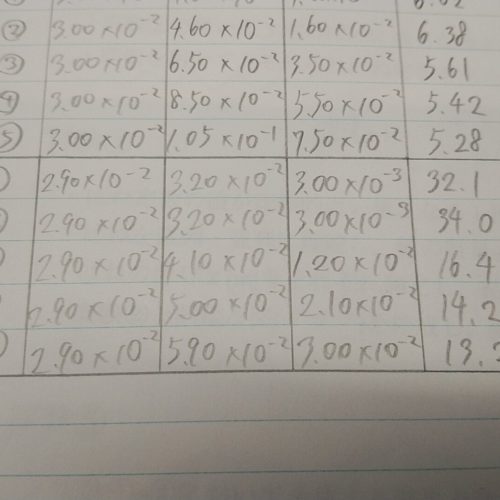 ② 3.00×10⁻² 4.60×10⁻² 1.60×10⁻² 6.38
③ 3.00×10⁻² 6.50×10⁻² 3.50×10⁻² 5.61
④ 3.00×10⁻² 8.50×10⁻² 5.50×10⁻² 5.42
⑤ 3.00×10⁻² 1.05×10⁻¹ 7.50×10⁻² 5.28
2.90×10⁻² 3.20×10⁻² 3.00×10⁻³ 32.1
2.90×10⁻² 3.20×10⁻² 3.00×10⁻³ 34.0
2.90×10⁻² 4.10×10⁻² 1.20×10⁻² 16.4
2.90×10⁻² 5.00×10⁻² 2.10×10⁻² 14.2
2.90×10⁻² 5.90×10⁻² 3.00×10⁻² 13.